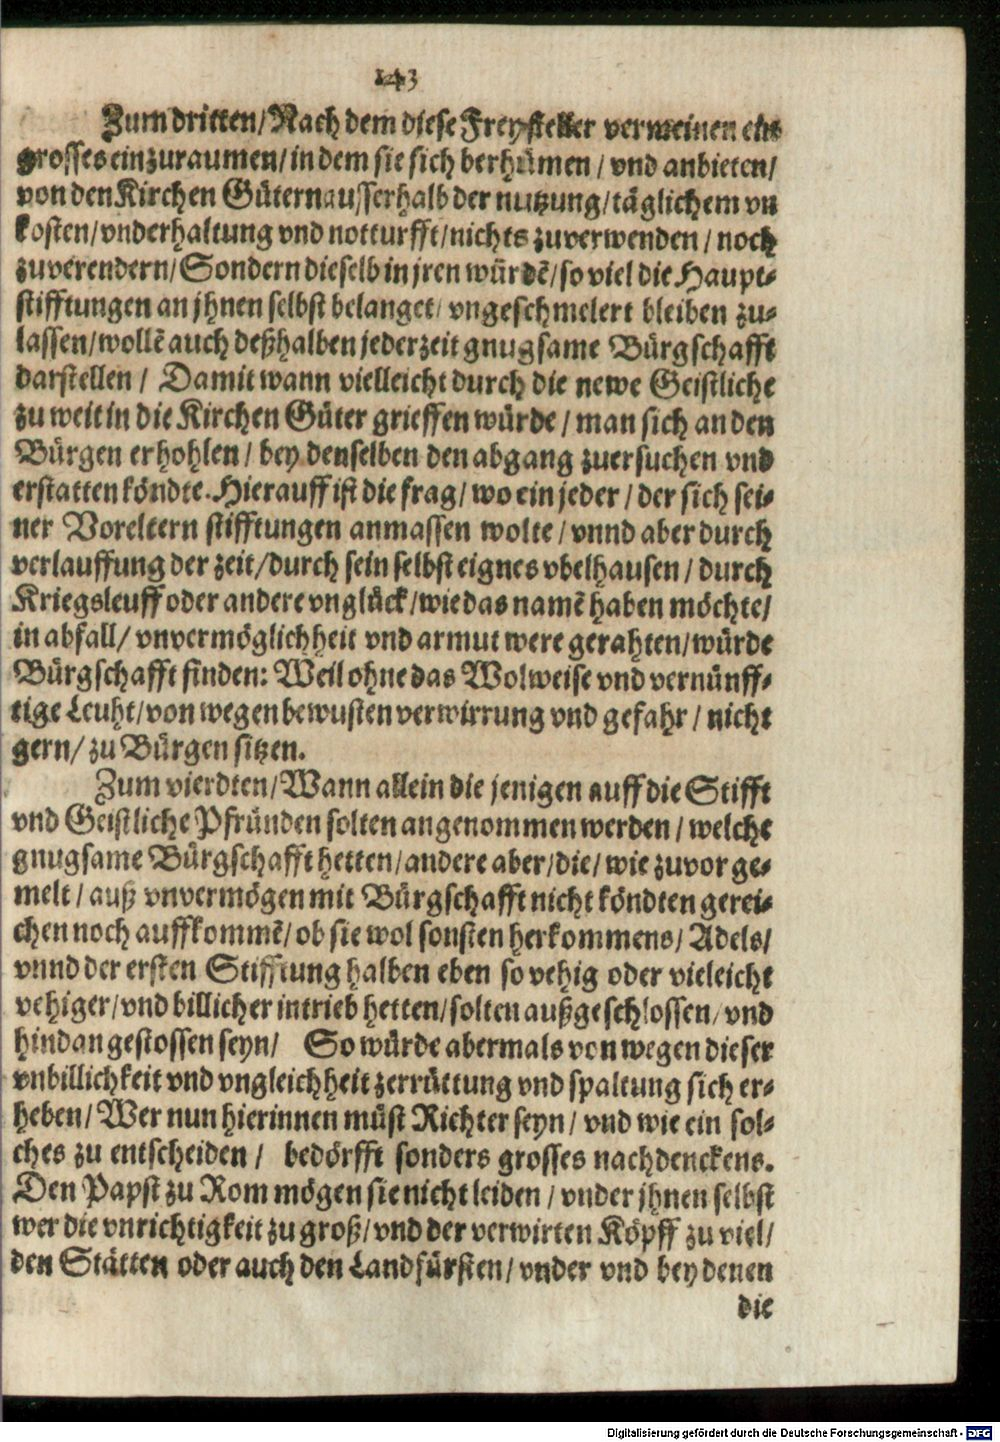 143
Zum dritten/ Nach dem diese Freysteller vermeinen ein
grosses einzuraumen/ in dem sie sich berhümen / vnd anbieten/
von den Kirchen Gütern ausserhalb der nutzung/ täglichem vn
kosten/ vnderhaltung vnd notturfft/ nichts zuverwenden / noch
zuverendern/ Sondern dieselb in jren würdẽ/ so viel die Haupt-
stifftungen an jhnen selbst belanget/ vngeschmelert bleiben zu-
lassen/ wollẽ auch deßhalben jederzeit gnugsame Bürgschafft
darstellen / Damit wann vielleicht durch die newe Geistliche
zu weit in die Kirchen Güter grieffen würde / man sich an den
Bürgen erhohlen / bey denselben den abgang zuersuchen vnd
erstatten köndte. Hierauff ist die frag/ wo ein jeder / der sich sei-
ner Voreltern stifftungen anmassen wolte / vnnd aber durch
verlauffung der zeit/ durch sein selbst eignes vbelhausen / durch
Kriegsleuff oder andere vnglück/ wie das namẽ haben möchte/
in abfall/ vnvermöglichheit vnd armut were gerahten/ würde
Bürgschafft finden: Weil ohne das Wolweise vnd vernünff-
tige Leuht/ von wegen bewusten verwirrung vnd gefahr / nicht
gern/ zu Bürgen sitzen.
Zum vierdten/ Wann allein die jenigen auff die Stifft
vnd Geistliche Pfründen solten angenommen werden / welche
gnugsame Bürgschafft hetten/ andere aber/ die/ wie zuvor ge-
melt / auß vnvermögen mit Bürgschafft nicht köndten gerei-
chen noch auffkommẽ/ ob sie wol sonsten herkommens/ Adels/
vnnd der ersten Stifftung halben eben so vehig oder vieleicht
vehiger/ vnd billicher intrieb hetten/ solten außgeschlossen/ vnd
hindan gestossen seyn/ So würde abermals von wegen dieser
vnbillichkeit vnd vngleichheit zerrüttung vnd spaltung sich er-
heben/ Wer nun hierinnen müst Richter seyn / vnd wie ein sol-
ches zu entscheiden / bedörfft sonders grosses nachdenckens.
Den Papst zu Rom mögen sie nicht leiden / vnder jhnen selbst
wer die vnrichtigkeit zu groß/ vnd der verwirten Köpff zu viel/
den Stätten oder auch den Landfürsten/ vnder vnd bey denen
die
Digitalisierung gefördert durch die Deutsche Forschungsgemeinschaft - DFG